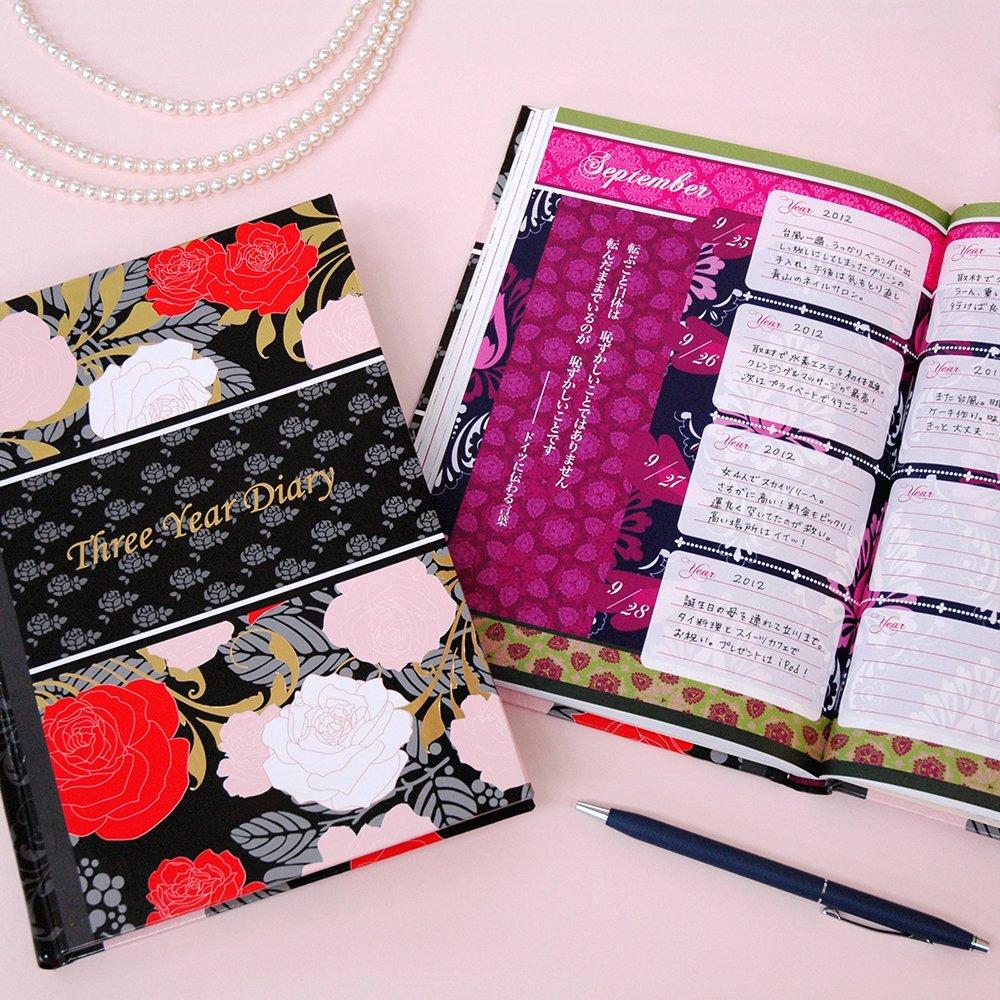 Three Year Diary
September
転ぶこと自体は 恥ずかしいことではありません
転んだままでいるのが 恥ずかしいことです
―― ドイツに伝わる言葉
9/25
Year 2012
台風一過、うっかりベランダに出
しっ放しにしてしまったグリーンの
手入れ。午後は気もとり直し
青山のネイルサロン。
9/26
Year 2012
取材で水素エステを初体験。
クレンジング&マッサージが最高!
次はプライベートで行こう〜
9/27
Year 2012
女4人でスカイツリーへ。
さすがに高い!料金もビックリ!
運良く空いてたのが救い。
高い場所はイイッ!
9/28
Year 2012
誕生日の母を連れて立川まで。
タイ料理とスイーツカフェで
お祝い。プレゼントは iPod!
Year
取材で
うーん、
行けばた
Year 201
また台風。明
ケーキ作り。
きっと大丈夫…
Year
Year